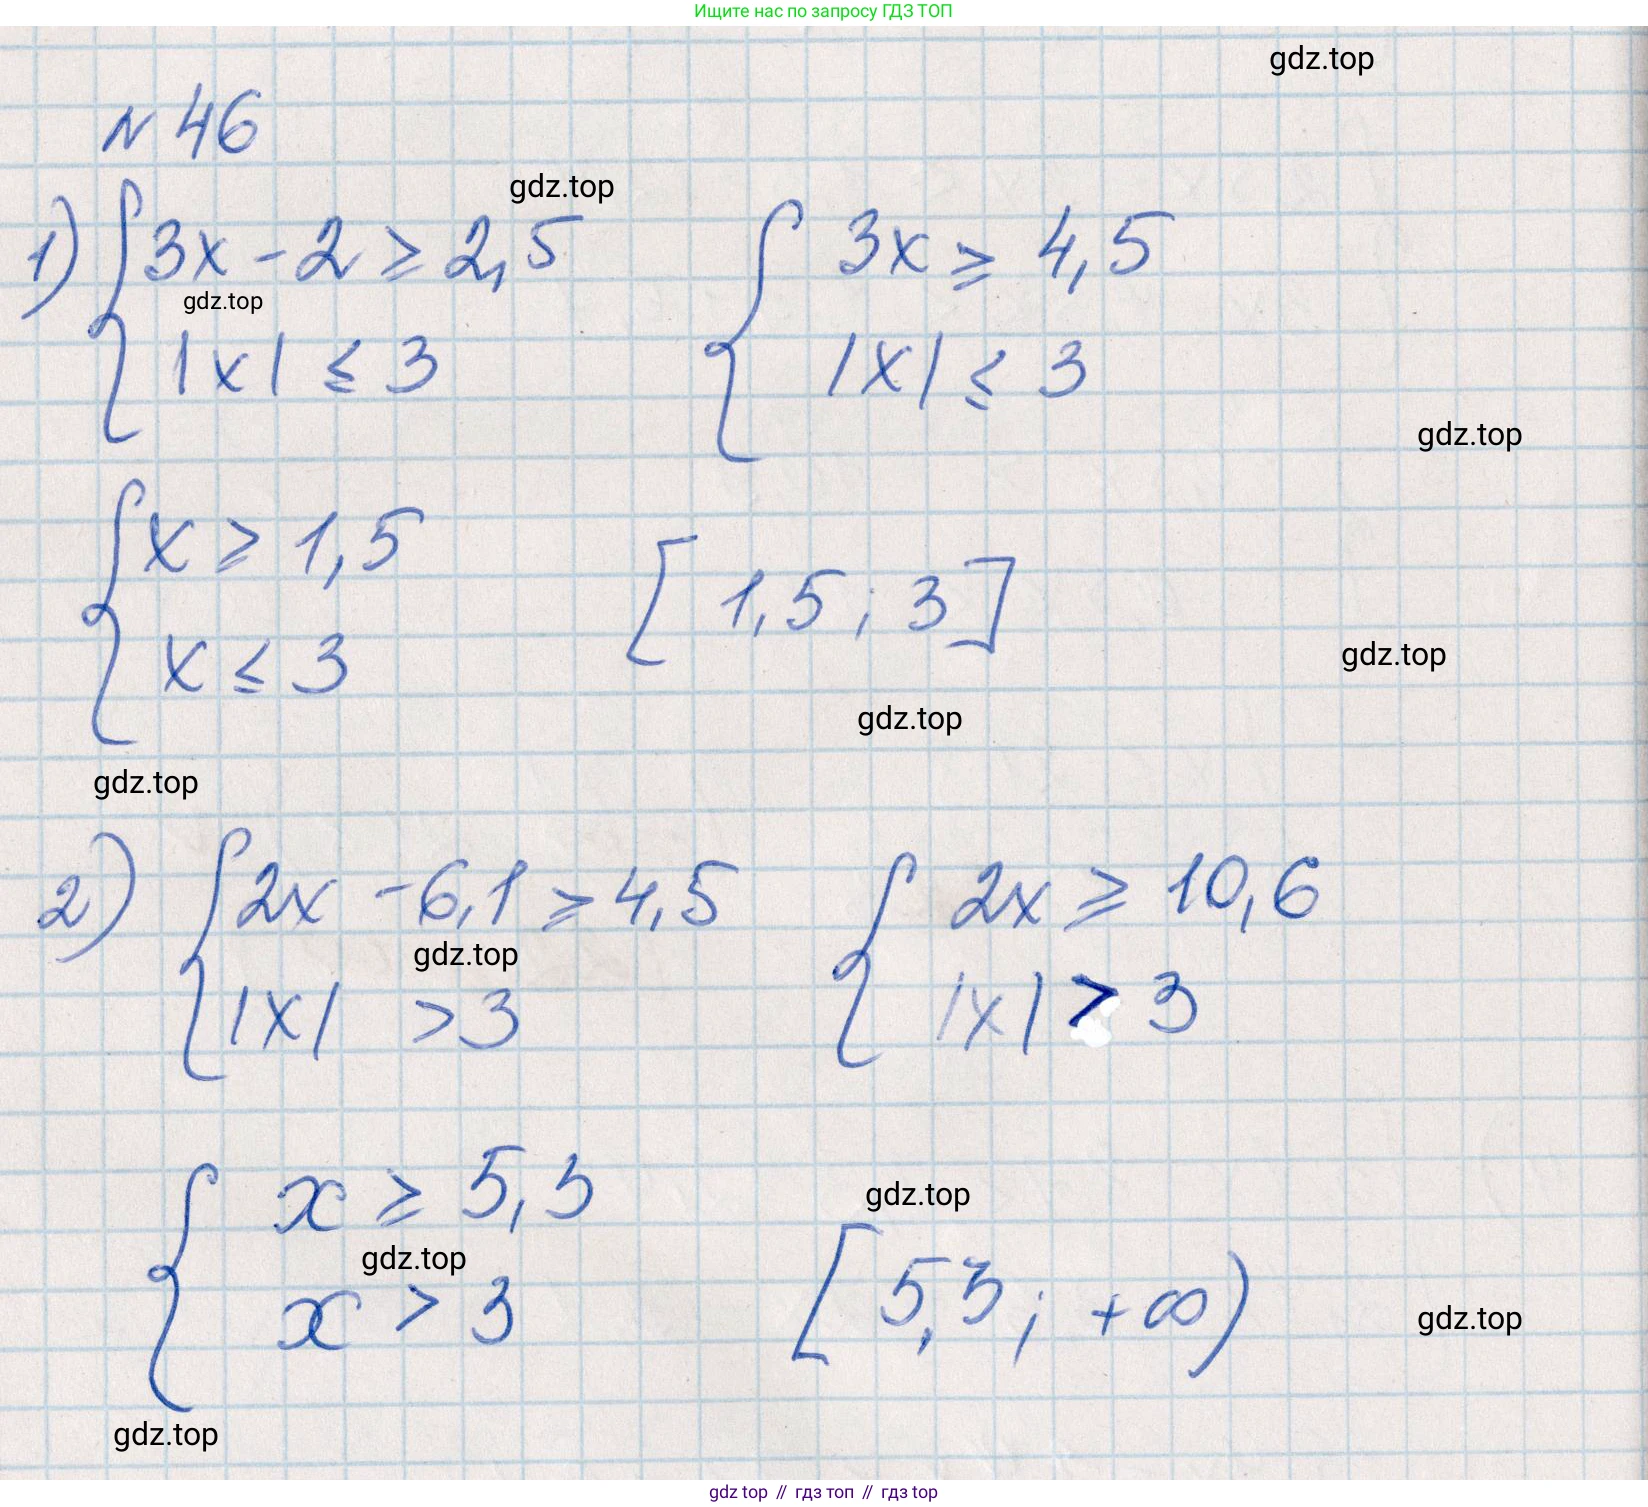 Ищите нас по запросу ГДЗ ТОП
gdz.top
№ 46
gdz.top
1) {3x - 2 ≥ 2,5 {3x ≥ 4,5
gdz.top
|x| ≤ 3 |x| ≤ 3
gdz.top
{x ≥ 1,5
x ≤ 3 [1,5 ; 3]
gdz.top
gdz.top
gdz.top
2) {2x - 6,1 ≥ 4,5 {2x ≥ 10,6
gdz.top
|x| > 3 |x| > 3
{x ≥ 5,3
gdz.top
gdz.top
x > 3 [5,3 ; +∞)
gdz.top
gdz.top
gdz top // гдз топ // гдз top